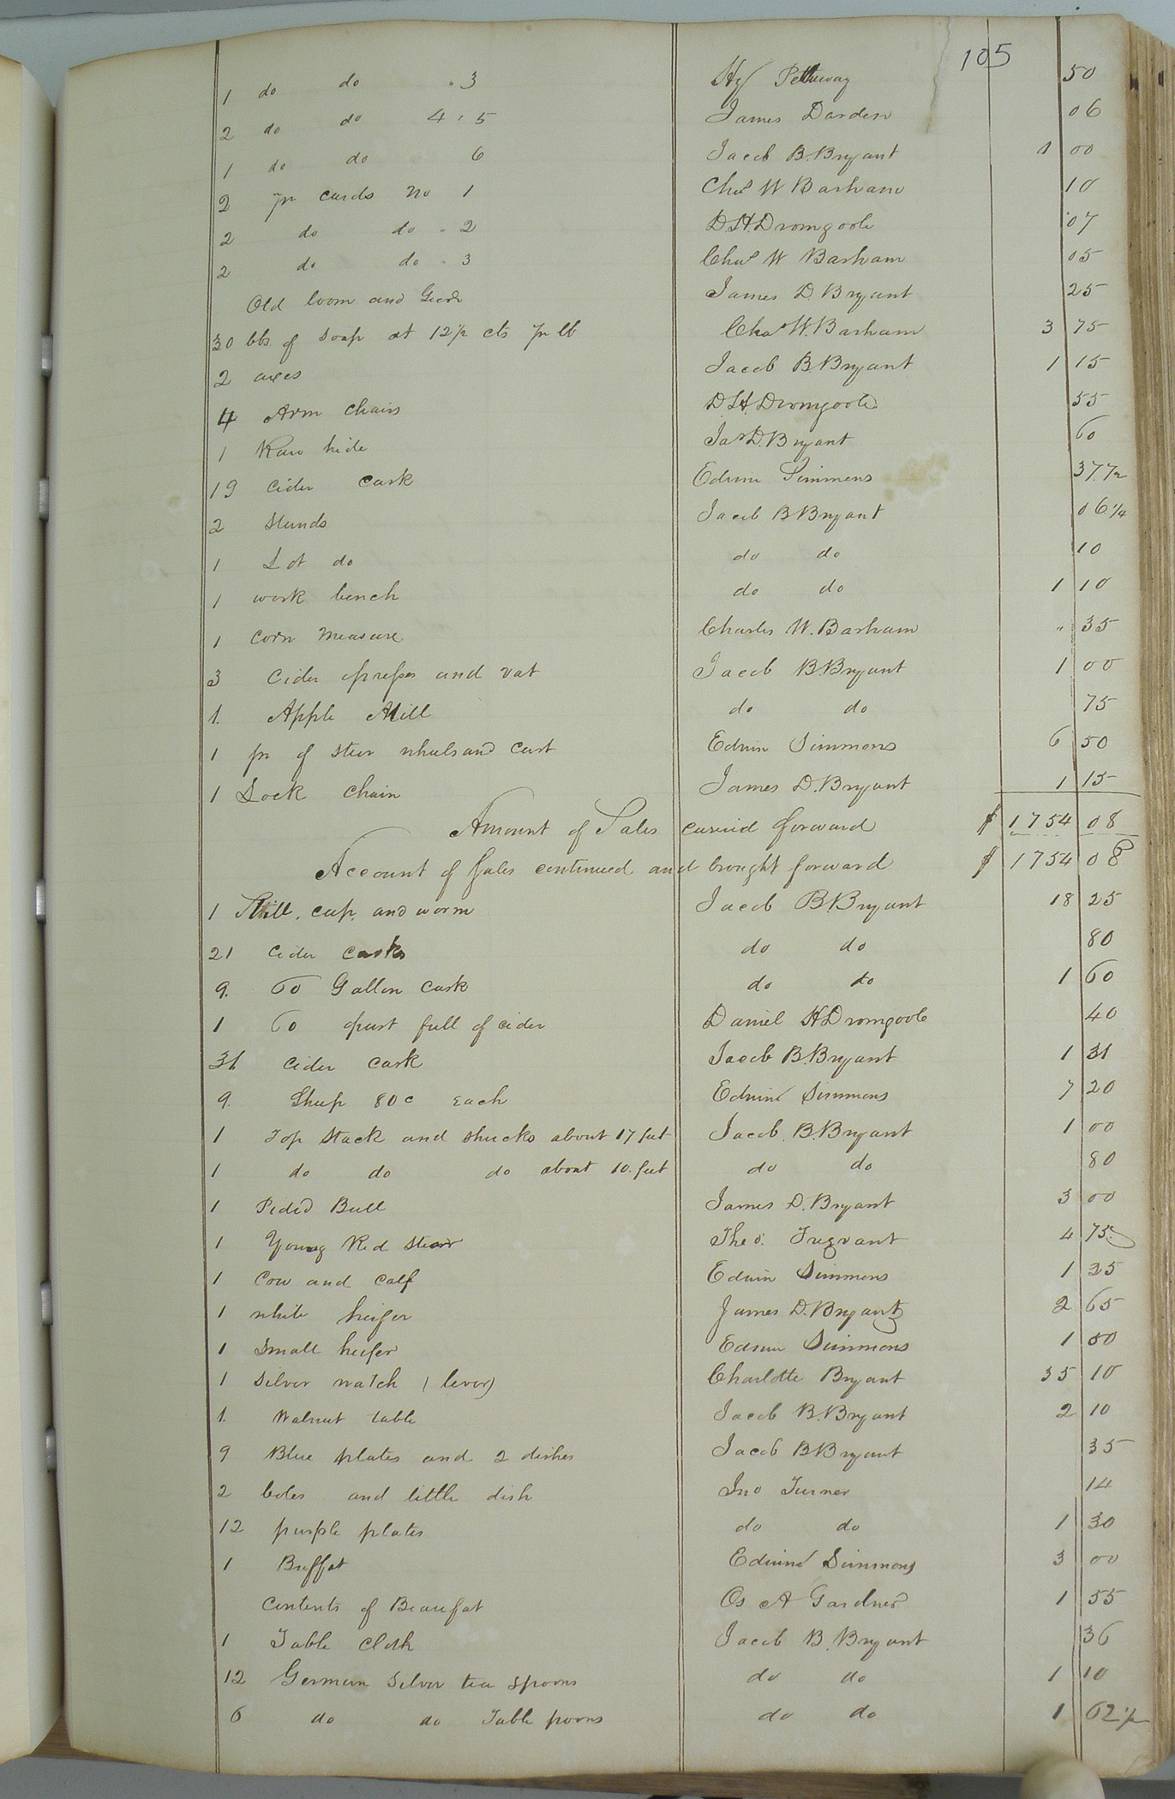 105
1 do do . 3 Hy Pettway 50
2 do do 4 , 5 James Darden 06
1 do do 6 Jacob B. Bryant 1 00
2 pr cards No 1 Chas W Barham 10
2 do do . 2 D. H. Dromgoole 07
2 do do . 3 Chas W Barham 05
Old loom and Gear James D. Bryant 25
30 lbs of Soap at 12½ cts pr lb Chas W. Barham 3 75
2 axes Jacob B. Bryant 1 15
4 Arm chairs D. H. Dromgoole 55
1 Raw hide Jas D. Bryant 60
19 Cider cask Edwin Simmons 37½
2 Stands Jacob B. Bryant 06¼
1 Lot do do do 10
1 work bench do do 1 10
1 Corn measure Charles W. Barham " 35
3 Cider presses and vat Jacob B. Bryant 1 00
1. Apple Mill do do 75
1 pr of steer wheels and cart Edwin Simmons 6 50
1 Lock chain James D. Bryant 1 15
Amount of Sales carried forward $ 1754 08
Account of Sales continued and brought forward $ 1754 08
1 Still, cap, and worm Jacob B. Bryant 18 25
21 cider casks do do 80
9. 60 Gallon cask do do 1 60
1 60 full of cider Daniel H Dromgoole 40
31 cider cask Jacob B. Bryant 1 31
9. Sheep 80c each Edwin Simmons 7 20
1 Top Stack and shucks about 17 feet Jacob B. Bryant 1 00
1 do do do about 10. feet do do 80
1 Pided Bull James D. Bryant 3 00
1 Young Red steer Theo. Trezvant 4 75
1 Cow and calf Edwin Simmons 1 35
1 white heifer James D. Bryant 2 65
1 Small heifer Edwin Simmons 1 80
1 Silver watch (lever) Charlotte Bryant 35 10
1. Walnut table Jacob B. Bryant 2 10
9 Blue plates and 2 dishes Jacob B Bryant 35
2 boles and little dish Jno Turner 14
12 purple plates do do 1 30
1 Buffat Edwin Simmons 3 00
Contents of Beaufat Os A Gardner 1 55
1 Table cloth Jacob B. Bryant 36
12 German Silver tea spoons do do 1 10
6 do do Table poons do do 1 62½